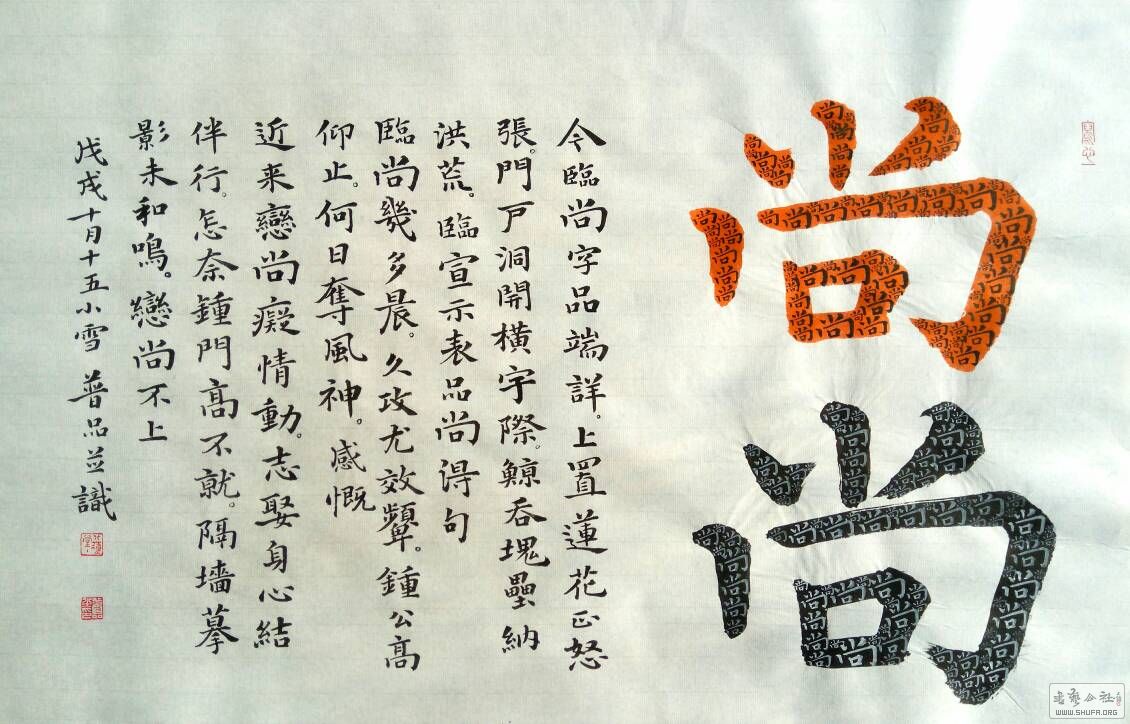 尚
尚
今臨尚字品端詳。上置蓮花正怒
張。門戸洞開橫宇際。鯨吞塊壘納
洪荒。臨宣示表品尚得句
臨尚幾多晨。久攻尤效顰。鍾公高
仰止。何日奪風神。感慨
近来戀尚癡情動。志娶身心結
伴行。怎奈鍾門高不就。隔墻摹
影未和鳴。戀尚不上
戊戌十月十五小雪 普品並識
書藝公社
WWW.SHUFA.ORG